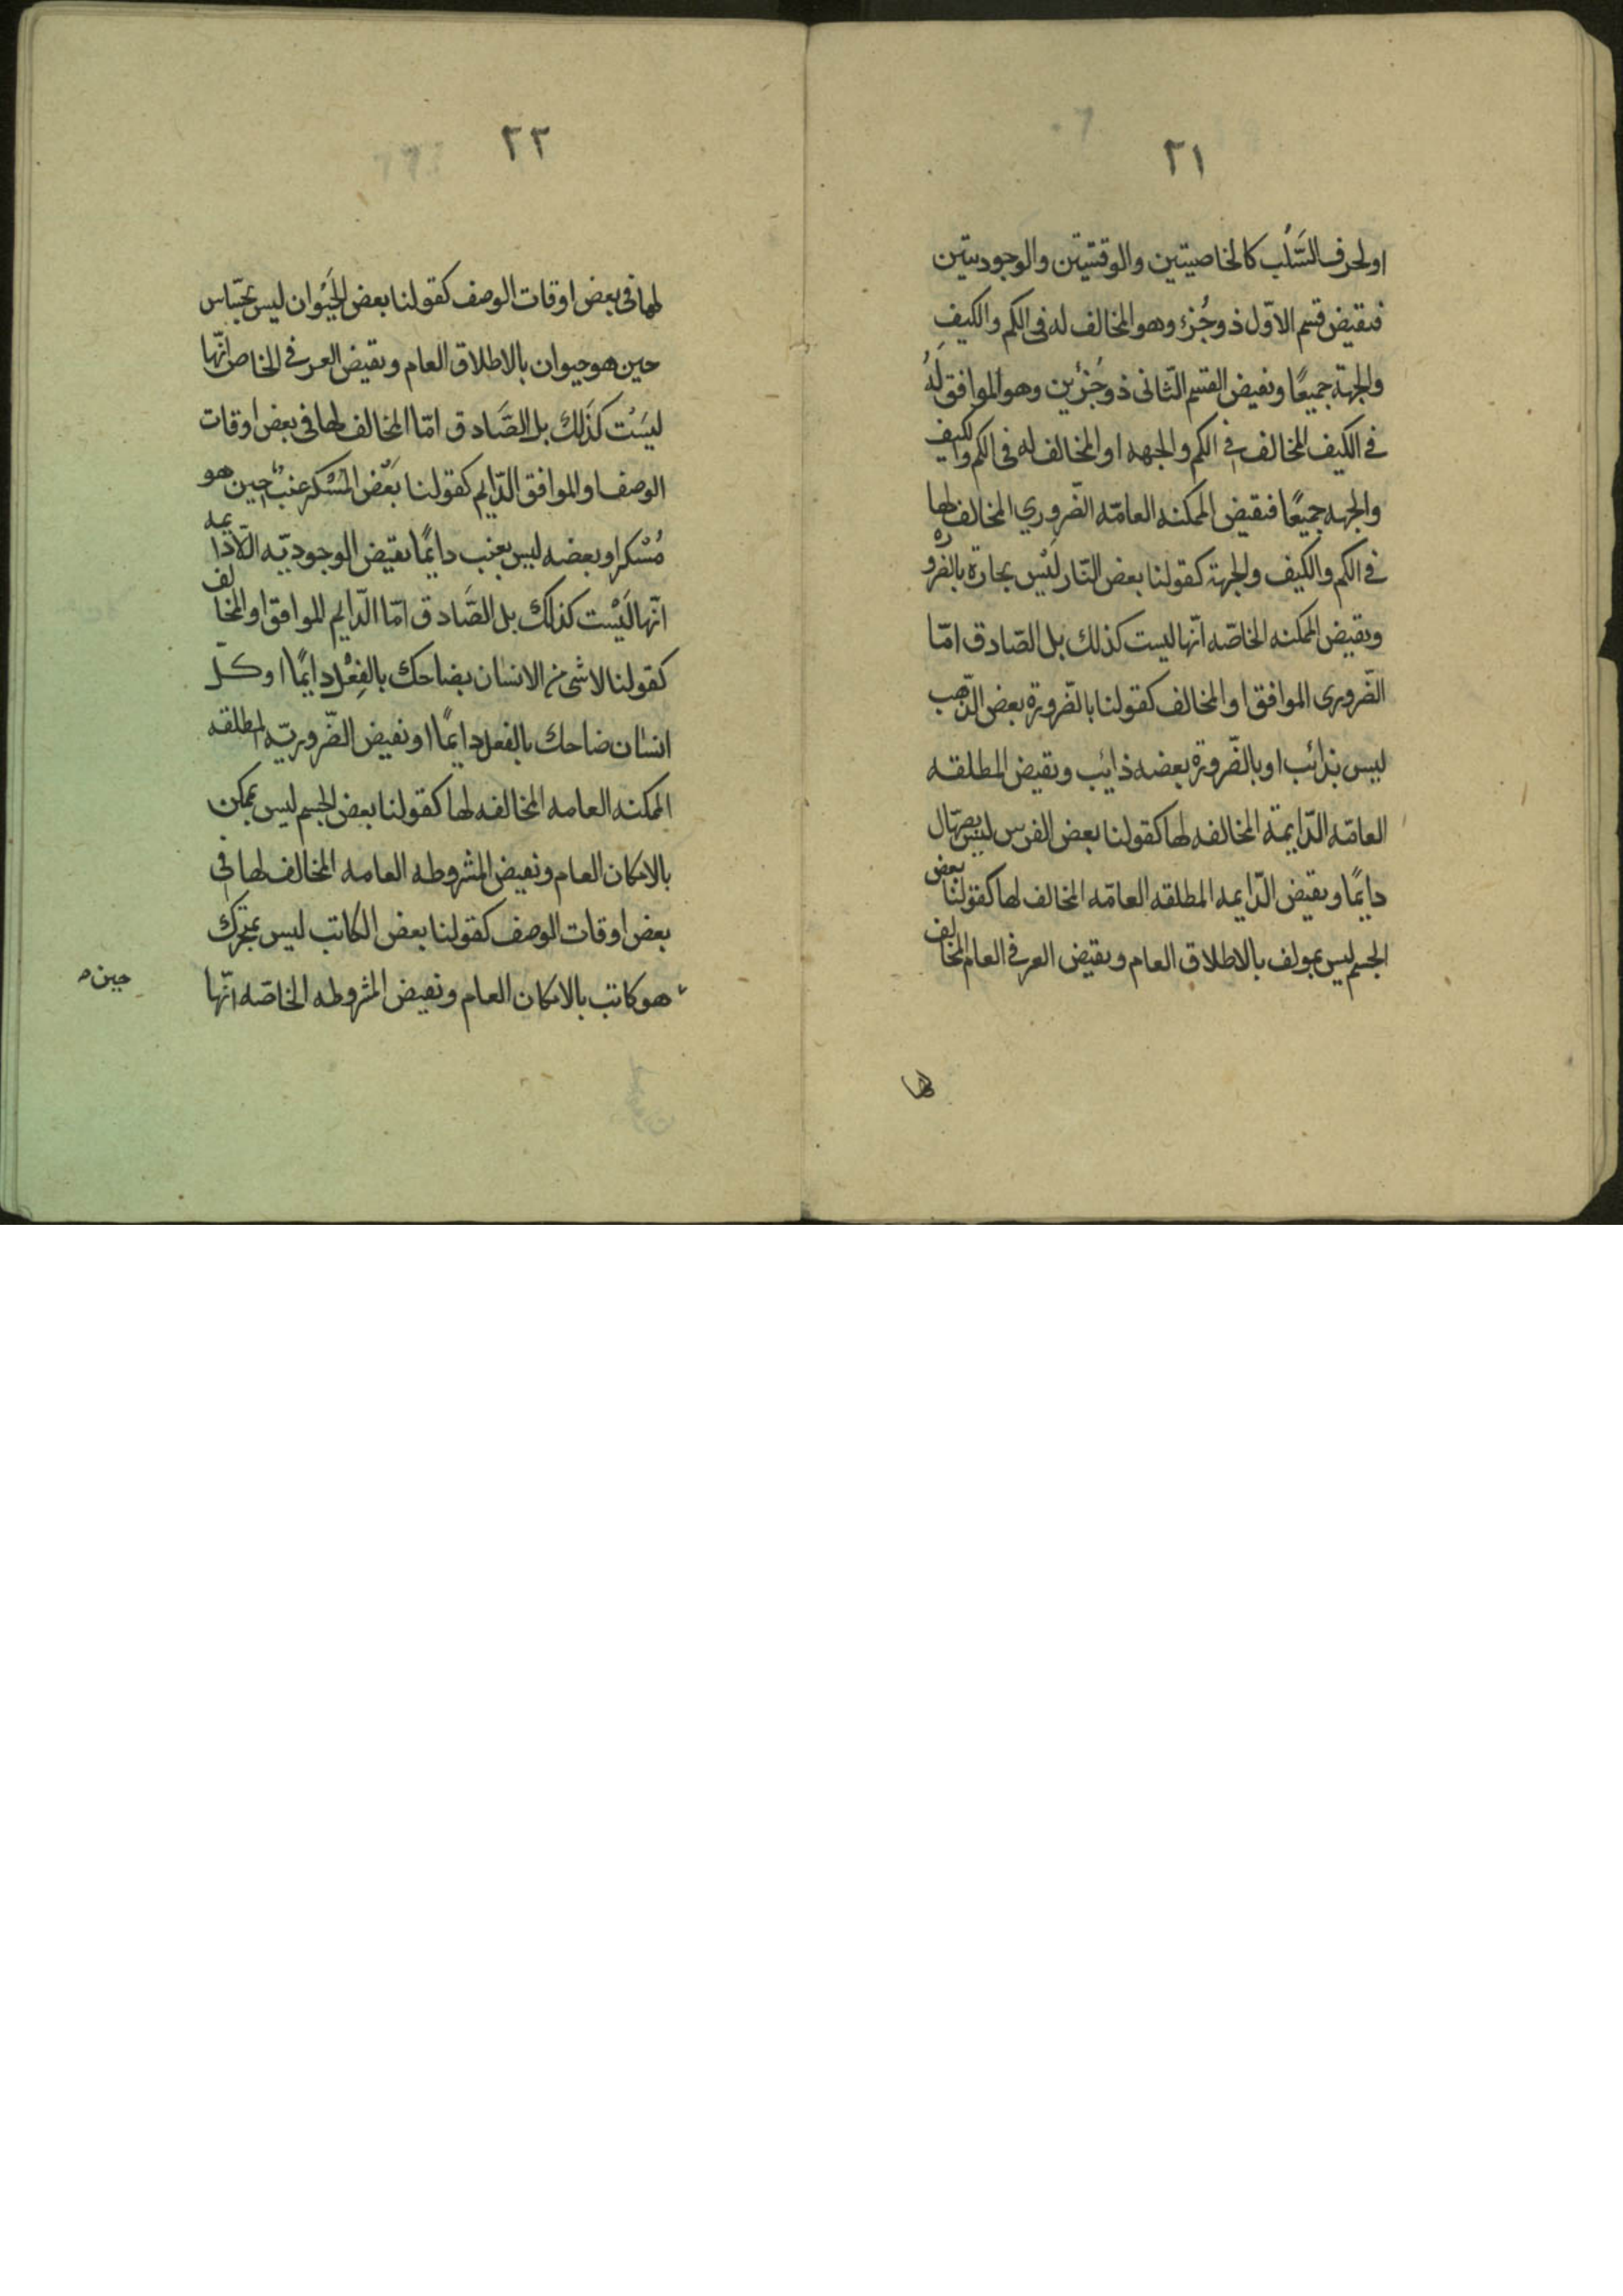 ٢١
او لحرف السَّلب كالخاصيتين والوقتيتين والوجوديتين
فنقيض قسم الاوّل ذو جُزء وهو المخالف له فى الكم والكيفِ
والجهة جميعًا ونقيض القسم الثّانى ذو جُزئين وهو الموافق لهُ
فى الكيف المخالف فى الكم والجهه او المخالف له فى الكم والكيف
والجهه جميعًا فنقيض الممكنه العامّه الضّروري المخالف لها
فى الكم والكيف والجهة كقولنا بعض النّار ليْس بحارة بالضّروره
ونقيض الممكنه الخاصّه انّها ليست كذلك بل الصّادق امّا
الضّرورى الموافق او المخالف كقولنا بالضّرورة بعض الذّهب
ليس بذائب او بالضّرورة بعضه ذائب ونقيض المطلقه
العامّه الدّايمة المخالفه لها كقولنا بعض الفرس ليس بصهّال
دايمًا ونقيض الدّايمه المطلقه العامّه المخالف لها كقولنا بعض
الجسم ليس بمولف بالاطلاق العام ونقيض العرفى العام المخالف
لها
٢٢
لها فى بعض اوقات الوصف كقولنا بعض الحَيْوان ليس بحسّاس
حين هو حيوان بالاطلاق العام ونقيض العرفى الخاص انّها
ليسَتْ كذَلك بل الصَّادق امّا المخالف لها فى بعض اوقات
الوصف او الموافق الدّايم كقولنا بَعْض المسْكر عنبٌ حين هو
مُسْكر او بعضه ليس بعنب دايمًا نقيض الوجوديّه اللّادايمه
انّها لَيْست كذلك بل الصَّادق امّا الدّايم الموافق او المخالف
كقولنا لا شى من الانسان بضاحك بالفِعْل دايمًا او كلّ
انسان ضاحك بالفعل دايمًا او نقيض الضّروريّه المطلقه
الممكنه العامه المخالفه لها كقولنا بعض الجسم ليس بممكن
بالامكان العام ونقيض المشروطه العامه المخالف لها فى
بعض اوقات الوصف كقولنا بعض الكاتب ليس بمتحرك
هو كاتب بالامكان العام ونقيض المشروطه الخاصّه انّها
حين